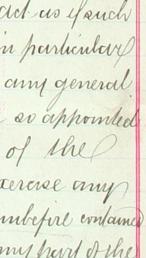 act as if such
in particular
any general
so appointed
of the
exercise any
inbefore contained
any part of the